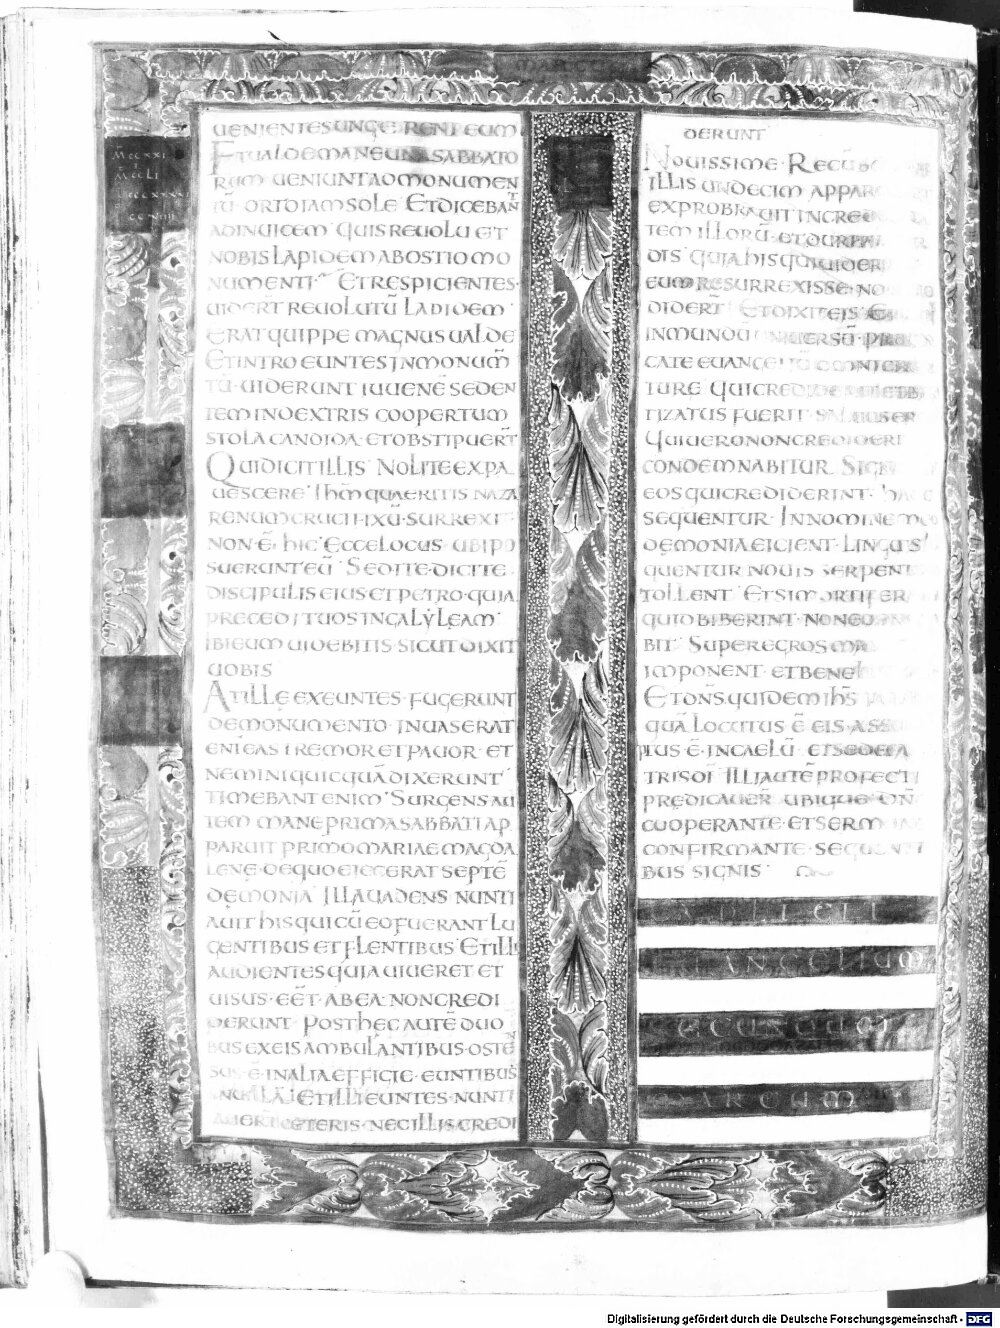 MARCUM
MCCXXXI
I
MCCLI
UENIENTES UNGERENT EUM
ET UALDE MANE UNA SABBATO
RUM UENIUNT AD MONUMEN
TU ORTO IAM SOLE ET DICEBANT
ADINUICEM QUIS REUOLUET
NOBIS LAPIDEM AB OSTIO MO
NUMENTI ET RESPICIENTES
UIDERT REUOLUTU LAPIDEM
ERAT QUIPPE MAGNUS UALDE
ET INTROEUNTES IN MONUM
TU UIDERUNT IUUENE SEDEN
TEM IN DEXTRIS COOPERTUM
STOLA CANDIDA ET OBSTIPUERT
QUI DICIT ILLIS NOLITE EXPA
UESCERE IHM QUAERITIS NAZA
RENUM CRUCIFIXU SURREXIT
NON E HIC ECCE LOCUS UBI PO
SUERUNT EU SED ITE DICITE
DISCIPULIS EIUS ET PETRO QUIA
PRECEDIT UOS IN GALYLEAM
IBI EUM UIDEBITIS SICUT DIXIT
UOBIS
AT ILLE EXEUNTES FUGERUNT
DE MONUMENTO INUASERAT
ENI EAS TREMOR ET PAUOR ET
NEMINI QUICQUA DIXERUNT
TIMEBANT ENIM SURGENS AU
TEM MANE PRIMA SABBATI AP
PARUIT PRIMO MARIAE MAGDA
LENE DE QUO EIECERAT SEPTE
DEMONIA ILLA UADENS NUNTI
AUIT HIS QUI CU EO FUERANT LU
GENTIBUS ET FLENTIBUS ET ILLI
AUDIENTES QUIA UIUERET ET
UISUS EET AB EA NON CREDI
DERUNT POST HEC AUTE DUO
BUS EX EIS AMBULANTIBUS OSTE
SUS E IN ALIA EFFIGIE EUNTIBUS
IN UILLA ET ILLI EUNTES NUNTI
AUERT CETERIS NEC ILLIS CREDI
DERUNT
NOUISSIME RECUB
ILLIS UNDECIM APPAR
EXPROBRAUIT INCRED
TEM ILLORU ET DURITIA
DIS QUIA HIS QUI UIDER
EUM RESURREXISSE NO
DIDERT ET DIXIT EIS E
IN MUNDU UNIUERSU PRE
CATE EUANGELIU OMNI CREA
TURE QUI CREDIDE ET BAB
TIZATUS FUERIT SALUUS ER
QUI UERO NON CREDIDERI
CONDEMNABITUR SIG
EOS QUI CREDIDERINT HAEC
SEQUENTUR IN NOMINE M
DEMONIA EICIENT LINGUIS
QUENTUR NOUIS SERPENT
TOLLENT ET SI MORTIFER
QUID BIBERINT NON EU
BIT SUPER EGROS MA
IMPONENT ET BENE
ET DNS QUIDEM IHS
QUA LOCUTUS E EIS ASSU
TUS E IN CAELU ET SEDET A
TRIS DI ILLI AUTE PROFECTI
PREDICAUER UBIQUE DN
COOPERANTE ET SERM
CONFIRMANTE SEQUENTI
BUS SIGNIS
EXPLICIT
EUANGELIUM
SECUNDUM
MARCUM
Digitalisierung gefördert durch die Deutsche Forschungsgemeinschaft - DFG